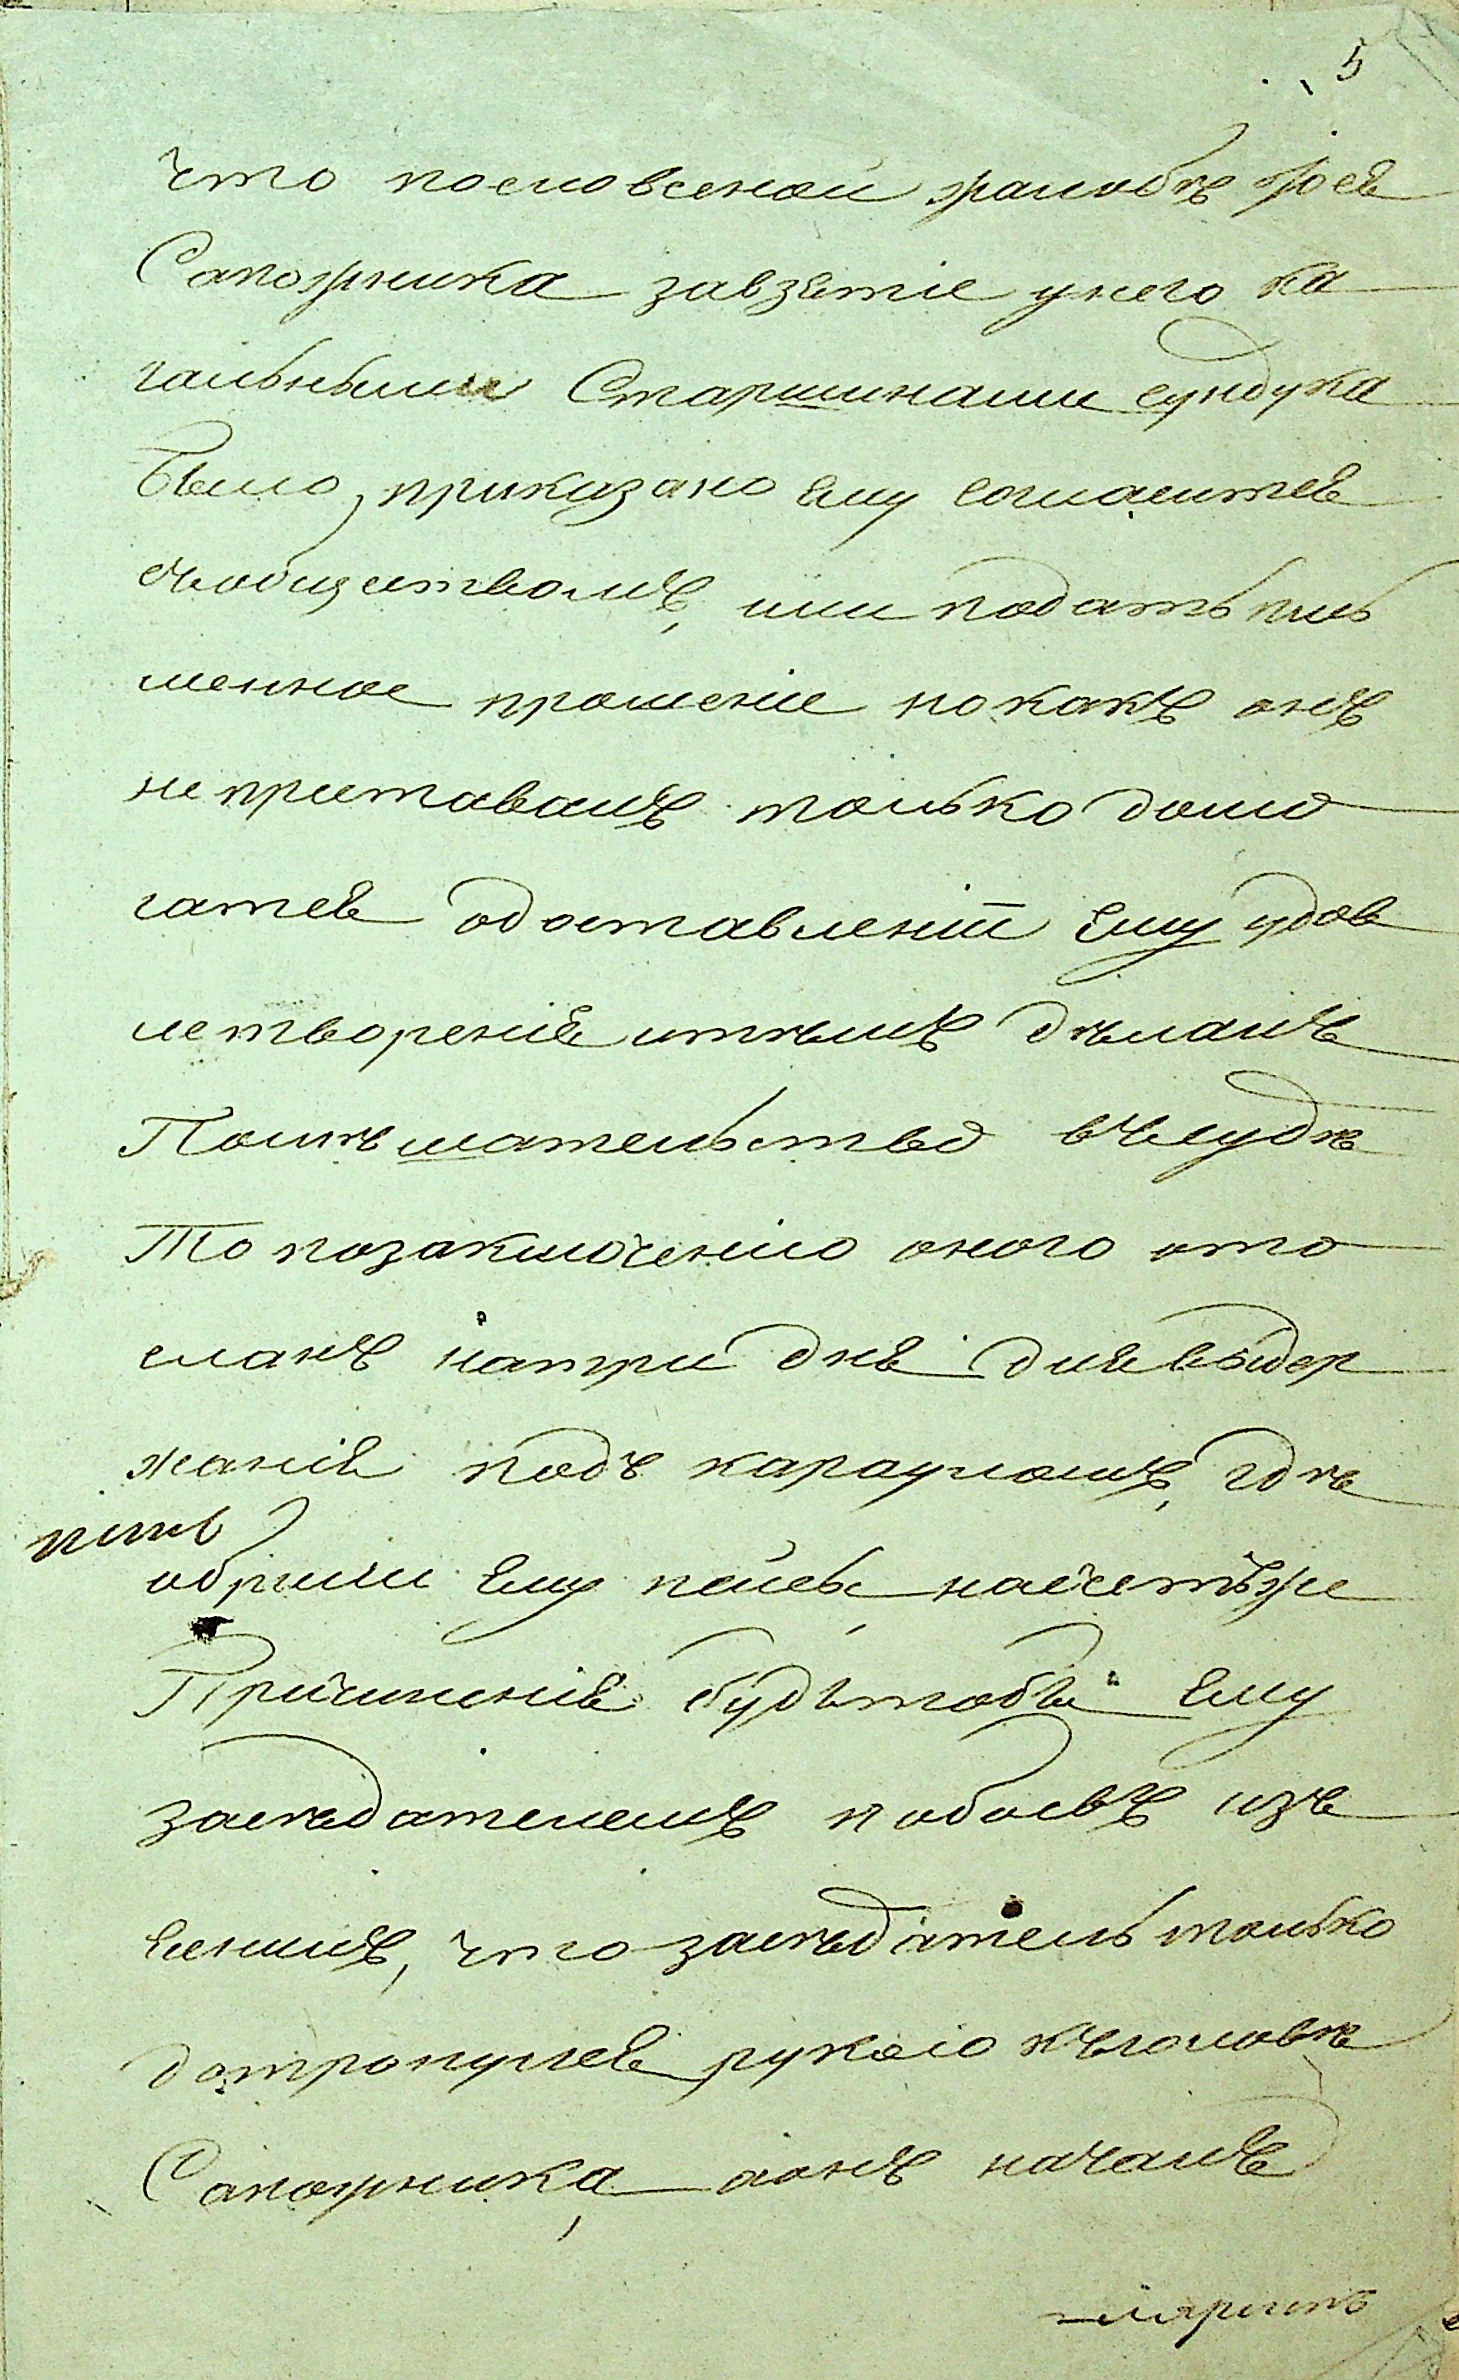 5
что пословесной жалобѣ Іося
Сапожника завзятіе унего ка
гальными Старшинами сундука
Было, приказано ему согласится
съобществомъ, или подать пись
менное прошеніе но какъ онъ
неприставалъ только домо
гатся одоставленіи ему удов
летворенія итѣмъ дѣлалъ
Помѣшательство въсудѣ
То позаключенію оного ото
сланъ натри дня для выдер
жанія подъ карауломъ, гдѣ
обрили ему пейсы, насчетъже
Причиненія будьтобы ему
засѣдателемъ побоевъ изъ
яснилъ, что засѣдатель только
дотронулся рукою къголовѣ
Сапожника, аонъ началъ